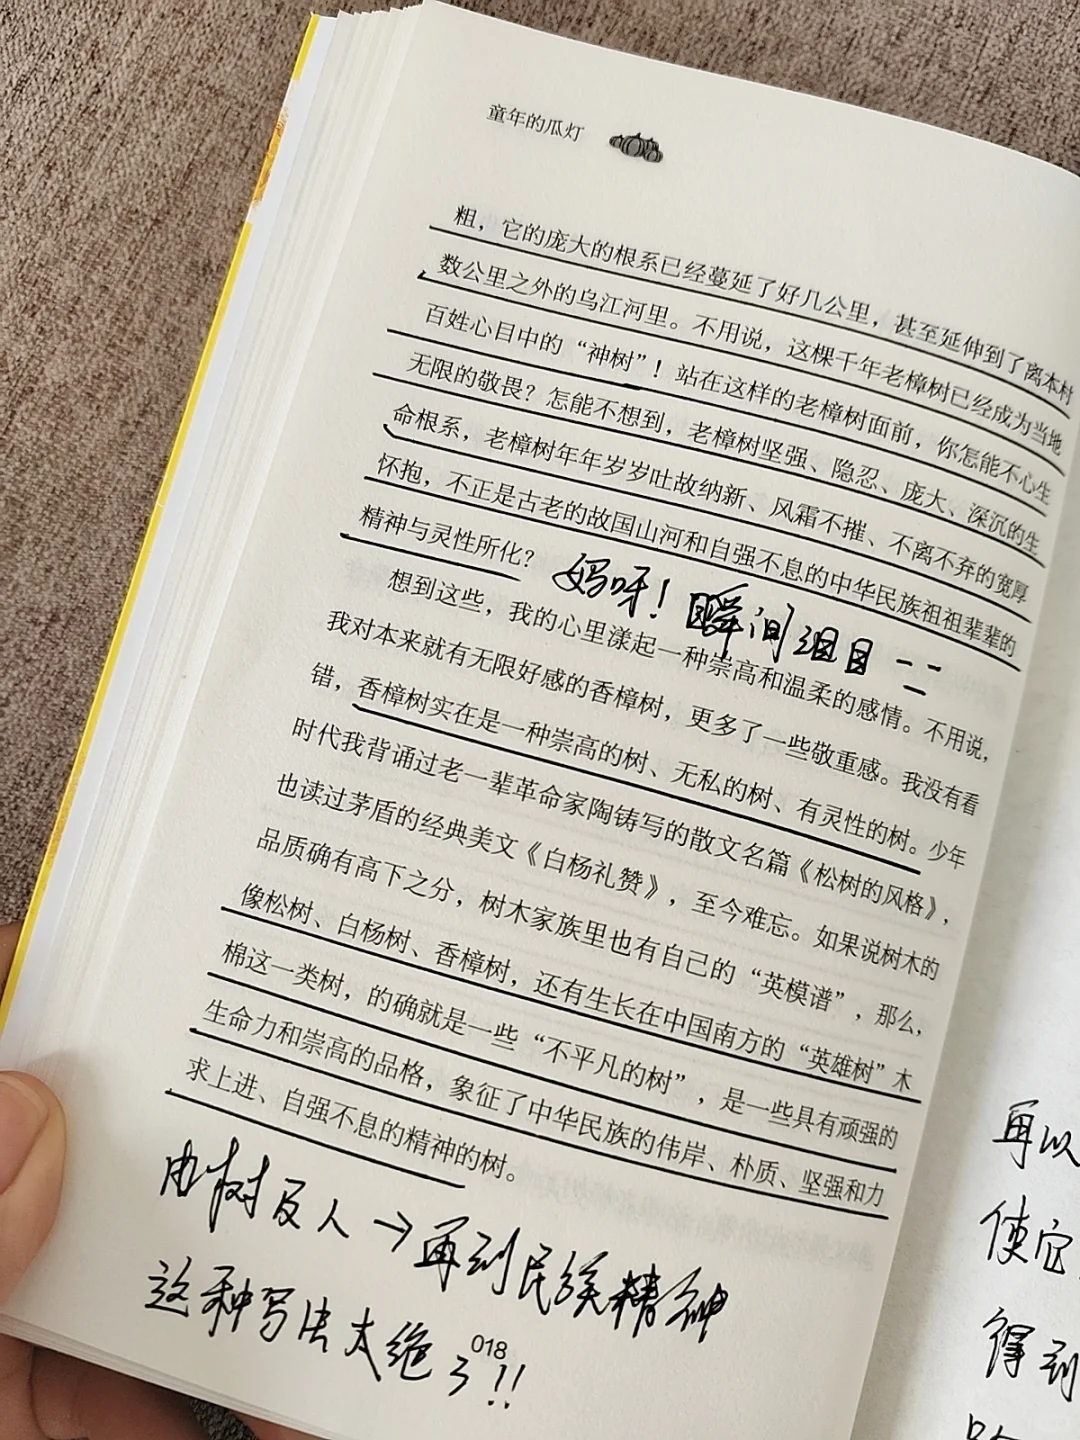 童年的瓜灯
粗，它的庞大的根系已经蔓延了好几公里，甚至延伸到了离本村
数公里之外的乌江河里。不用说，这棵千年老樟树已经成为当地
百姓心目中的“神树”！站在这样的老樟树面前，你怎能不心生
无限的敬畏？怎能不想到，老樟树坚强、隐忍、庞大、深沉的生
命根系，老樟树年年岁岁吐故纳新、风霜不摧、不离不弃的宽厚
怀抱，不正是古老的故国山河和自强不息的中华民族祖祖辈辈的
精神与灵性所化？
妈呀！瞬间泪目
想到这些，我的心里漾起一种崇高和温柔的感情。不用说，
我对本来就有无限好感的香樟树，更多了一些敬重感。我没有看
错，香樟树实在是一种崇高的树、无私的树、有灵性的树。少年
时代我背诵过老一辈革命家陶铸写的散文名篇《松树的风格》，
也读过茅盾的经典美文《白杨礼赞》，至今难忘。如果说树木的
品质确有高下之分，树木家族里也有自己的“英模谱”，那么，
像松树、白杨树、香樟树，还有生长在中国南方的“英雄树”木
棉这一类树，的确就是一些“不平凡的树”，是一些具有顽强的
生命力和崇高的品格，象征了中华民族的伟岸、朴质、坚强和力
求上进、自强不息的精神的树。
由树及人→再到民族精神
这种写法太绝了!!
018
再以
使它
得到